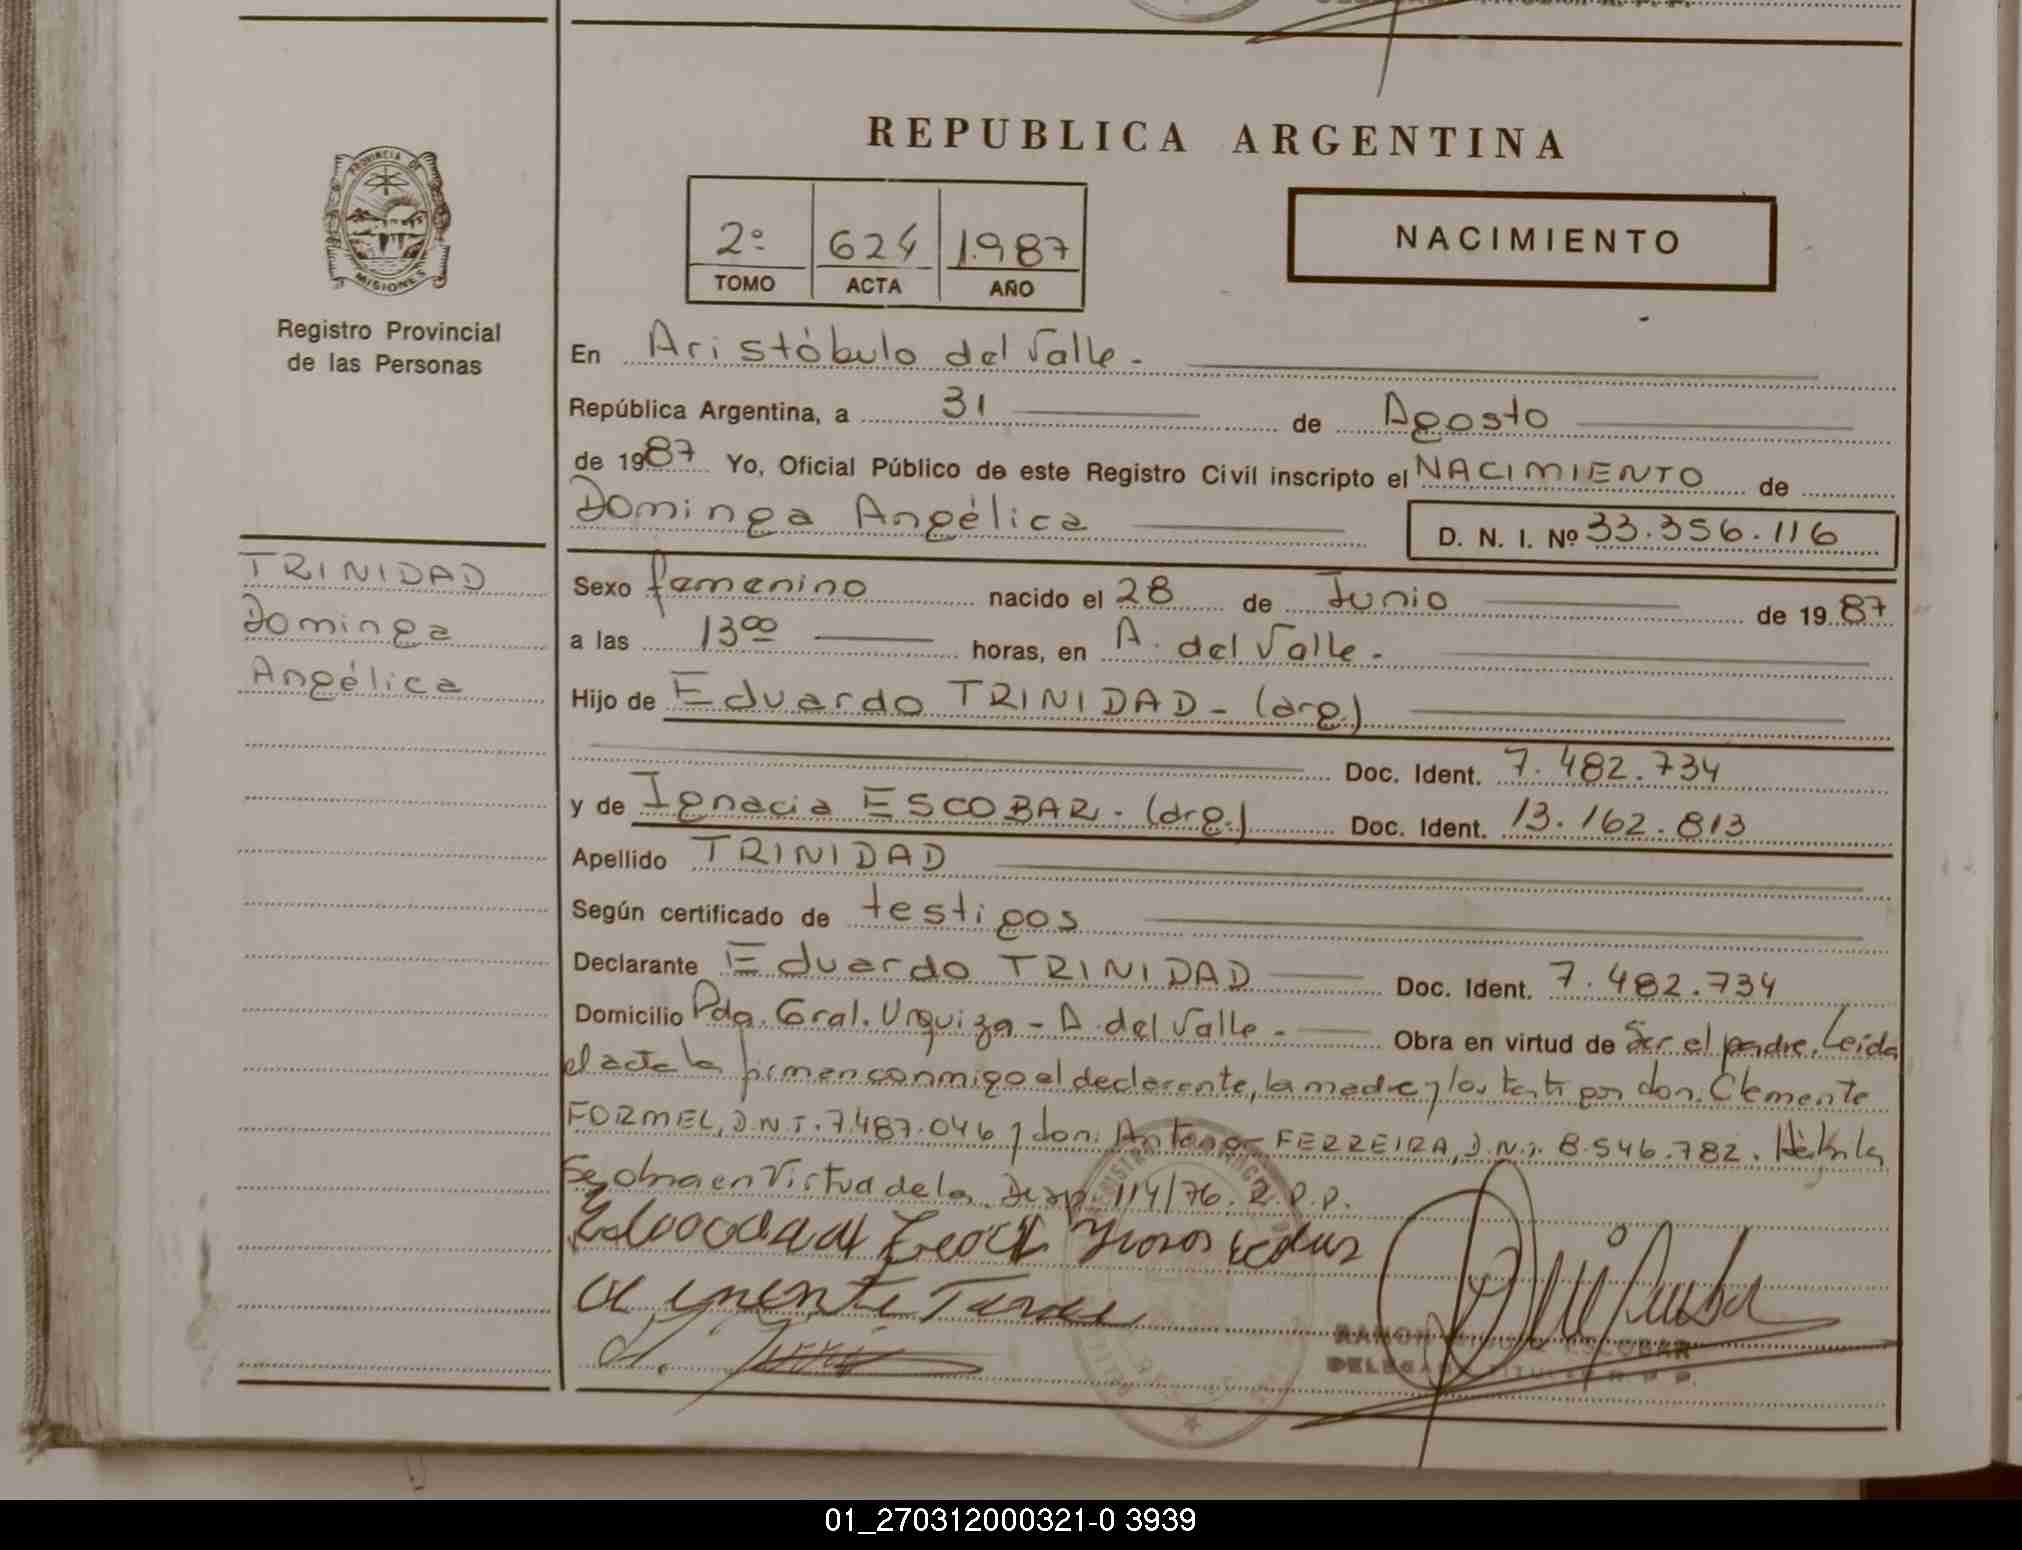 REPUBLICA ARGENTINA
PROVINCIA DE MISIONES
Registro Provincial
de las Personas
2º 624 1.987
TOMO ACTA AÑO
NACIMIENTO
En Aristóbulo del Valle.-
República Argentina, a 31 de Agosto
de 1987 Yo, Oficial Público de este Registro Civil inscripto el NACIMIENTO de
Dominga Angélica D. N. I. Nº 33.356.116
TRINIDAD
Dominga
Angélica
Sexo femenino nacido el 28 de Junio de 1987
a las 13⁰⁰ horas, en A. del Valle.-
Hijo de Eduardo TRINIDAD - (arg.)
Doc. Ident. 7.482.734
y de Ignacia ESCOBAR.- (arg.) Doc. Ident. 13.162.813
Apellido TRINIDAD
Según certificado de testigos
Declarante Eduardo TRINIDAD Doc. Ident. 7.482.734
Domicilio Pdg. Gral. Urquiza - A. del Valle.- Obra en virtud de Ser el padre. Leída
el acta la firman conmigo el declarante, la madre y los testigos don. Clemente
FORMEL, D.N.I. 7.487.046 y don. Antenor FERREIRA, D.N.I. 8.546.782.
Se obra en Virtud de la Disp. 114/76. R.P.P.
RAMON ESCOBAR
DELEGADO TITULAR R. P. P.
01_270312000321-0 3939